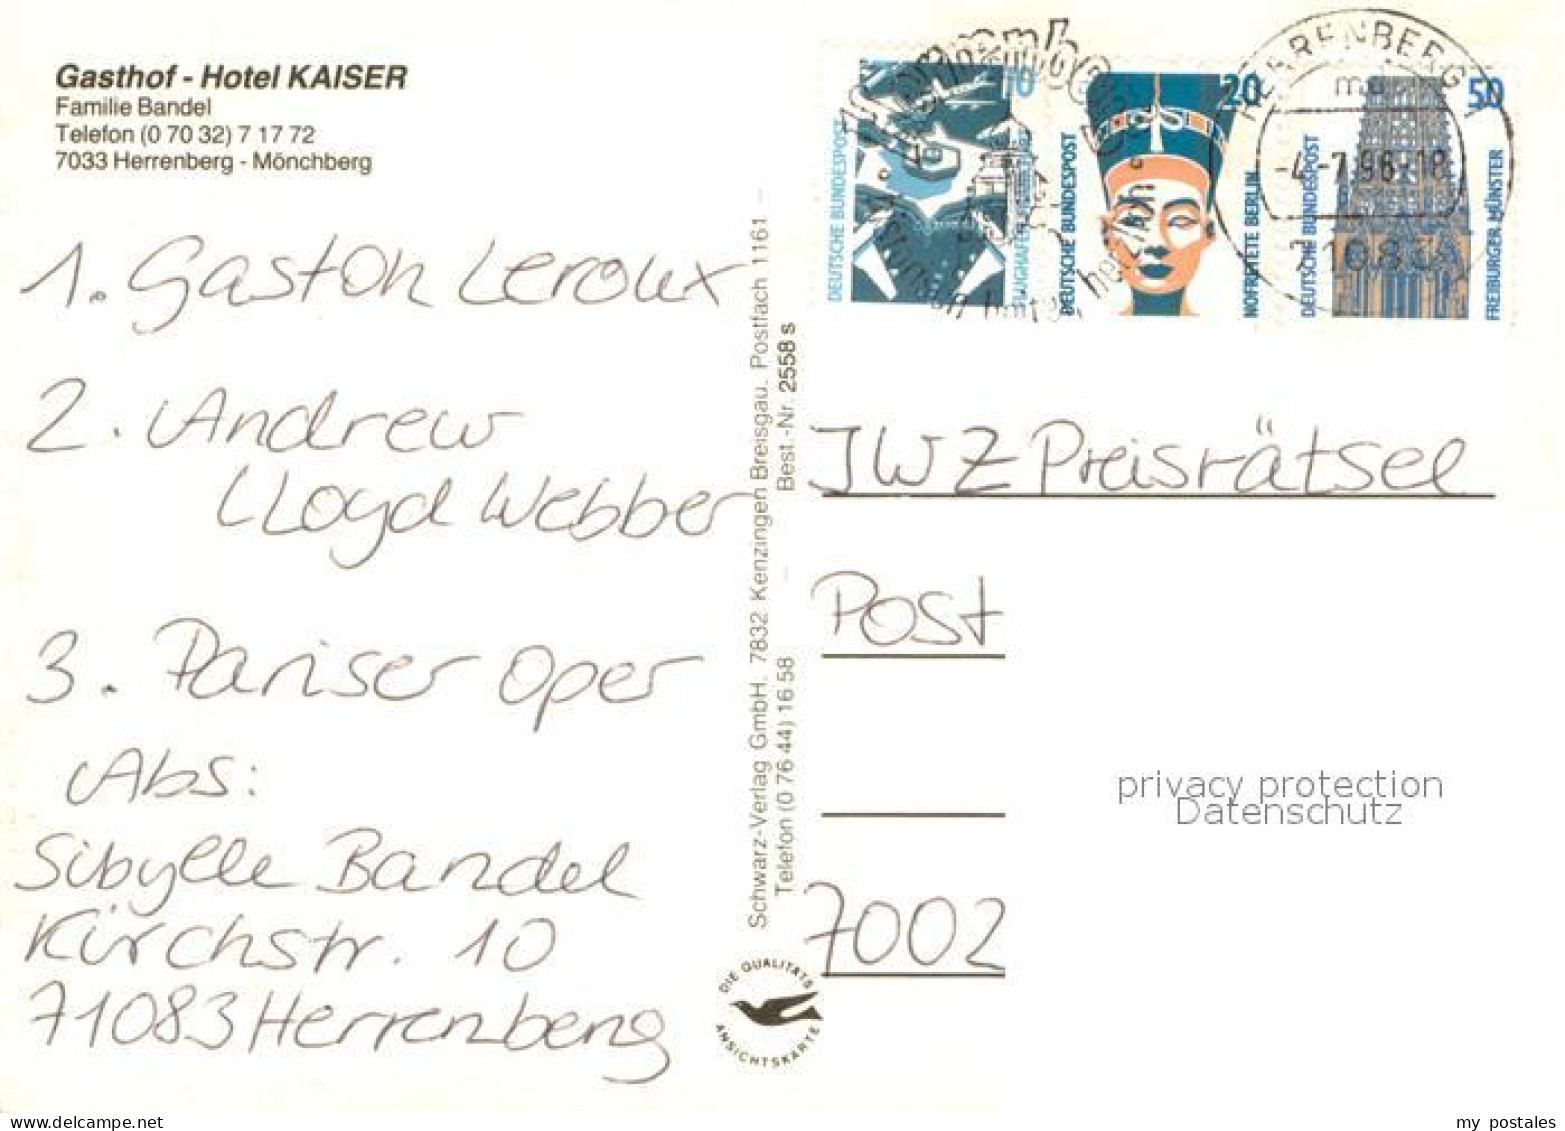 Gasthof - Hotel KAISER
Familie Bandel
Telefon (0 70 32) 7 17 72
7033 Herrenberg - Mönchberg
1. Gaston Leroux
2. Andrew
Lloyd Webber
3. Pariser Oper
Abs:
Sibylle Bandel
Kirchstr. 10
71083 Herrenberg
Schwarz-Verlag GmbH. 7832 Kenzingen Breisgau. Postfach 1161
Telefon (0 76 44) 16 58
Best.-Nr. 2558 s
DIE QUALITÄTS
ANSICHTSKARTE
10
DEUTSCHE BUNDESPOST
20
DEUTSCHE BUNDESPOST
NOFRETETE BERLIN
50
DEUTSCHE BUNDESPOST
FREIBURGER MÜNSTER
HERRENBERG 1
-4.-7.96-18
71083
JWZ Preisrätsel
Post
7002
privacy protection
Datenschutz
my postales